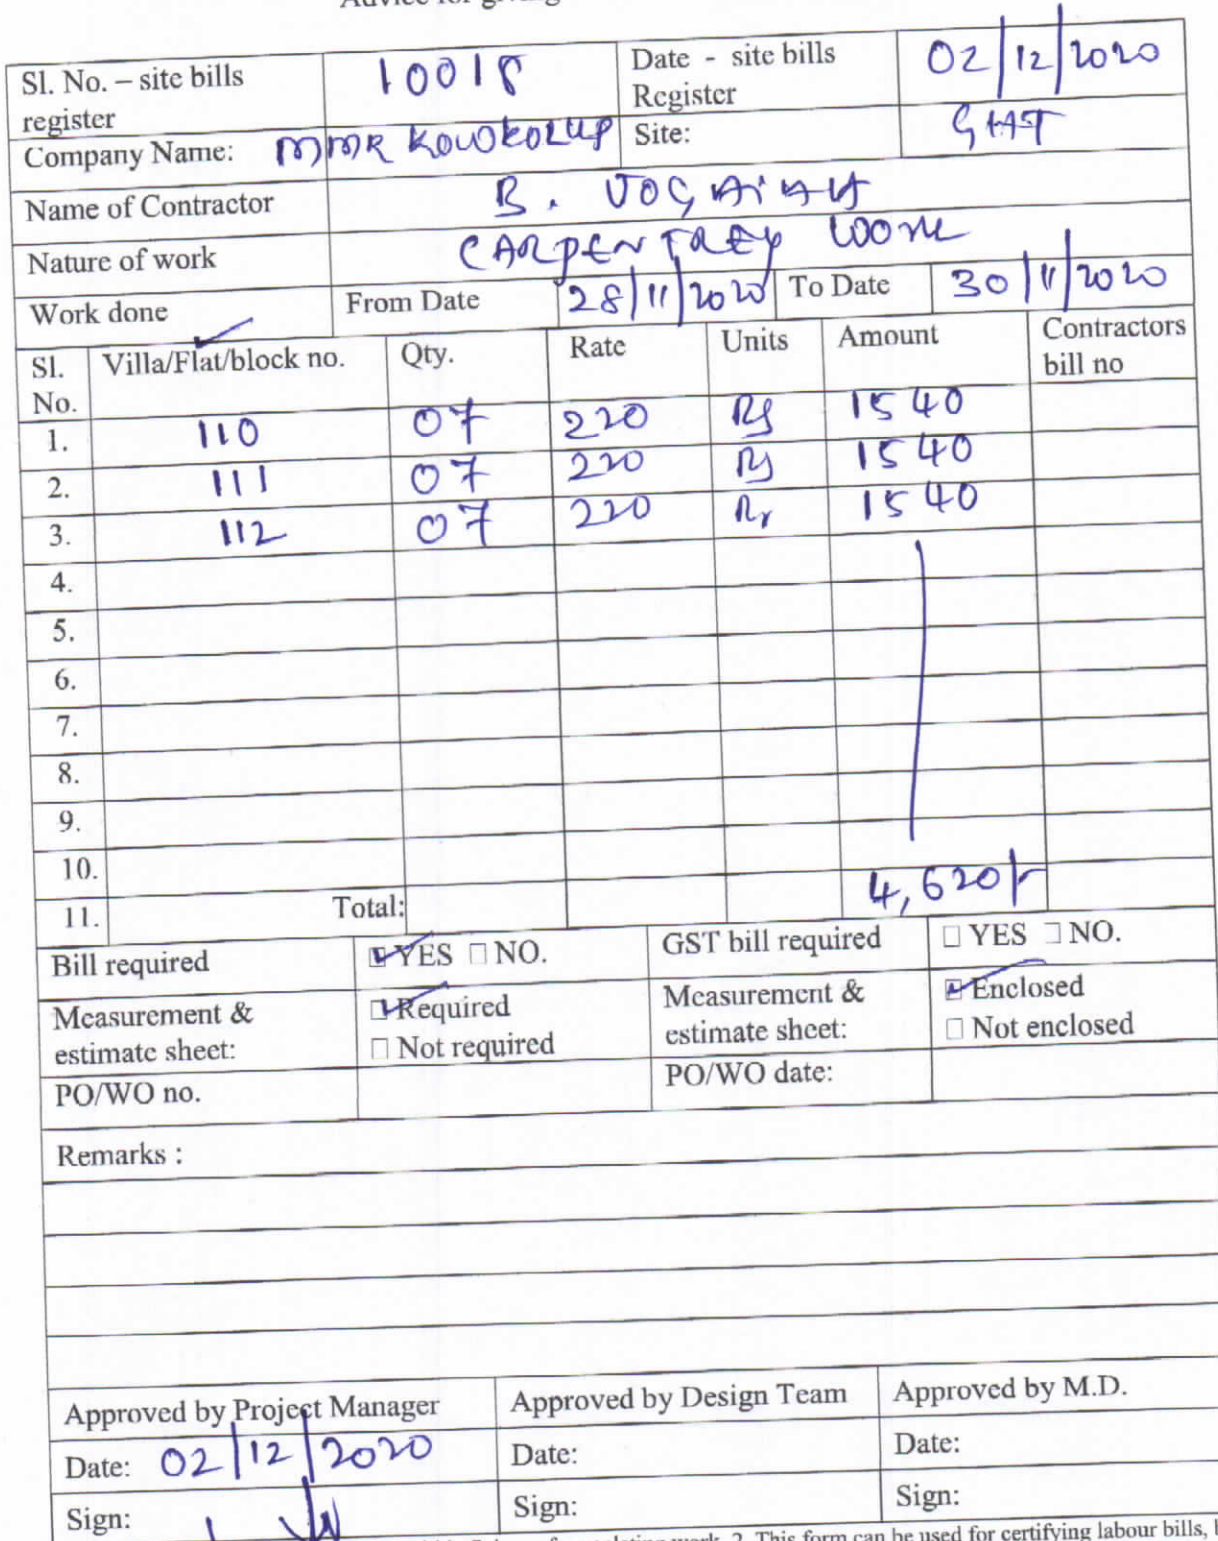 Sl. No. – site bills register 10018 Date - site bills Register 02/12/2020
Company Name: MMR Site:
Name of Contractor B.
Nature of work CARPENTREY WORK
Work done From Date 28/11/2020 To Date 30/11/2020
Sl. No. Villa/Flat/block no. Qty. Rate Units Amount Contractors bill no
1. 110 07 220 Rs 1540
2. 111 07 220 Rs 1540
3. 112 07 220 Rs 1540
4.
5.
6.
7.
8.
9.
10.
11. Total: 4,620/-
Bill required YES NO. GST bill required YES NO.
Measurement & estimate sheet: Required Not required Measurement & estimate sheet: Enclosed Not enclosed
PO/WO no. PO/WO date:
Remarks :
Approved by Project Manager Approved by Design Team Approved by M.D.
Date: 02/12/2020 Date: Date:
Sign: Sign: Sign:
work. 2. This form can be used for certifying labour bills,